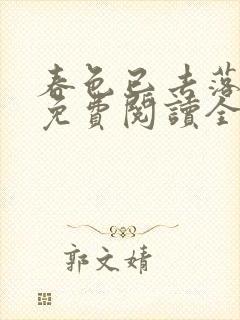 春色已去落
免費閱讀全
郭文婧